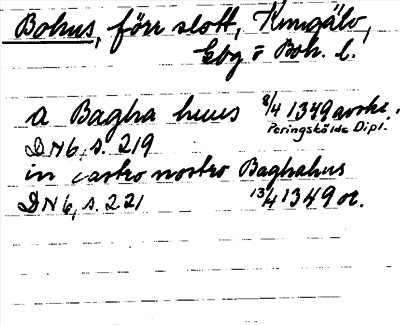 Bohus, förr slott, Kungälv,
Ebg ö Boh. l.
a Bagha huus 8/4 1349 avskr.
Peringskölds Dipl.
DN6, s. 219
in castro nostro Baghahus
DN6, s. 221 13/4 1349 or.